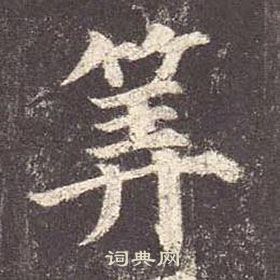 筭
词典网